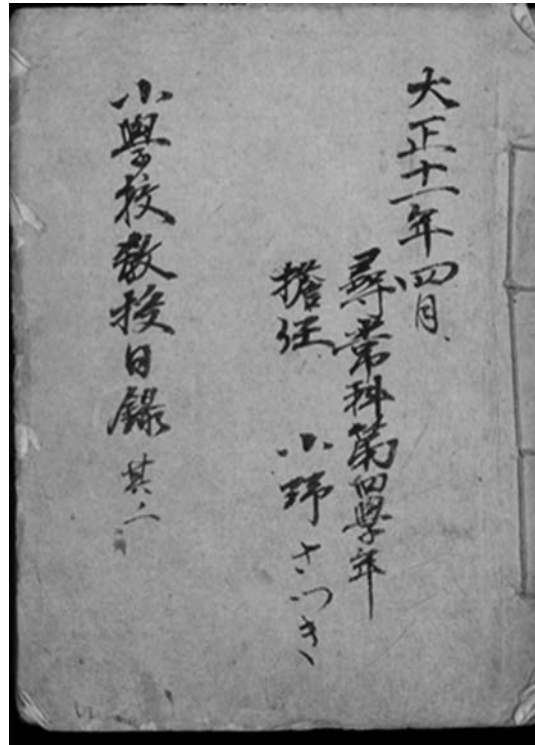 大正十一年四月
尋常科第四學年
擔任 小野さつき
小學校教授日錄 其二